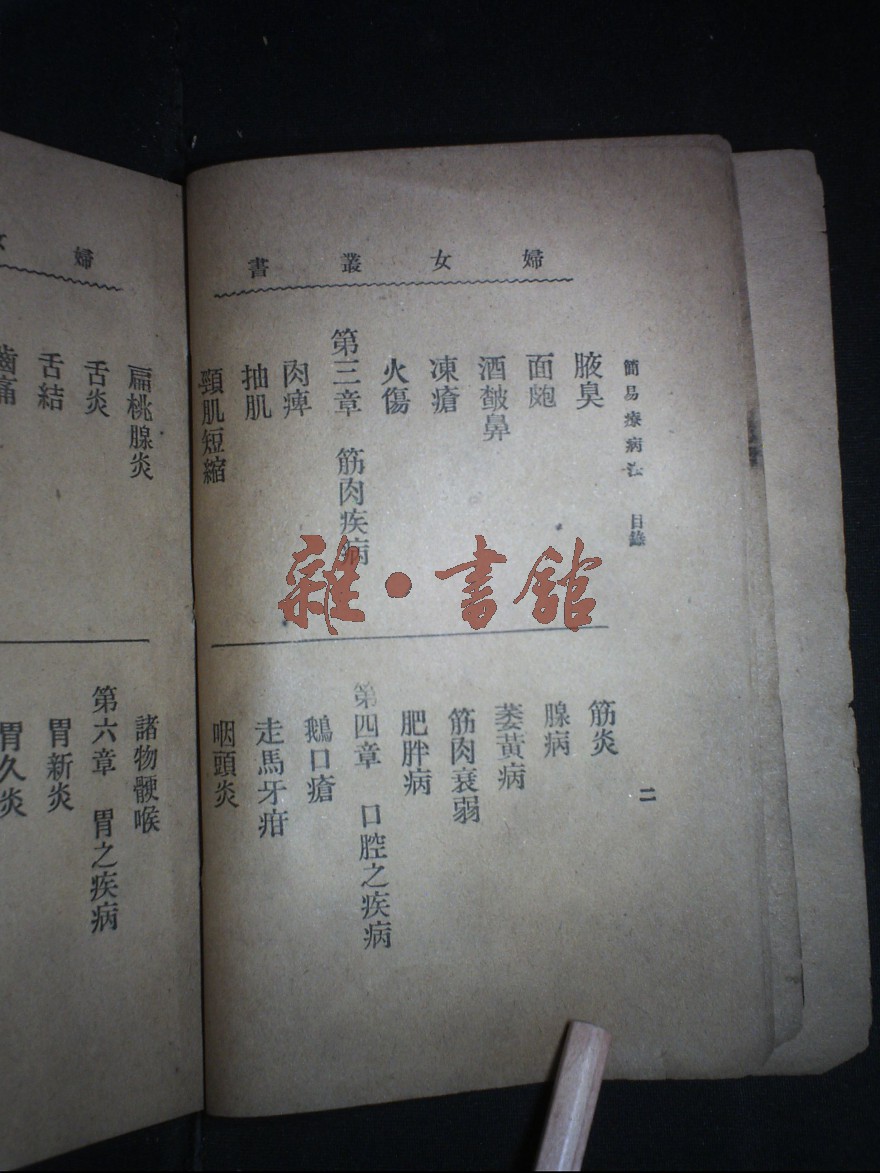 婦女叢書
簡易療病法 目錄
二
腋臭
面皰
酒皶鼻
凍瘡
火傷
第三章 筋肉疾病
肉痺
抽肌
頸肌短縮
筋炎
腺病
萎黃病
筋肉衰弱
肥胖病
第四章 口腔之疾病
鵝口瘡
走馬牙疳
咽頭炎
婦
扁桃腺炎
舌炎
舌結
齒痛
諸物骾喉
第六章 胃之疾病
胃新炎
胃久炎
雜·書館